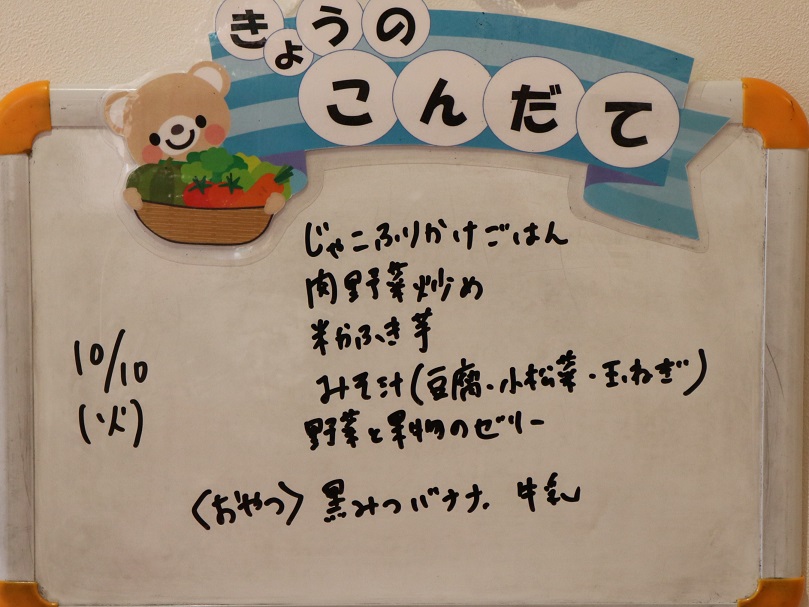 きょうの
こんだて
じゃこふりかけごはん
肉野菜炒め
粉ふき芋
10/10
(火)
みそ汁(豆腐・小松菜・玉ねぎ)
野菜と果物のゼリー
〈おやつ〉 黒みつバナナ、牛乳